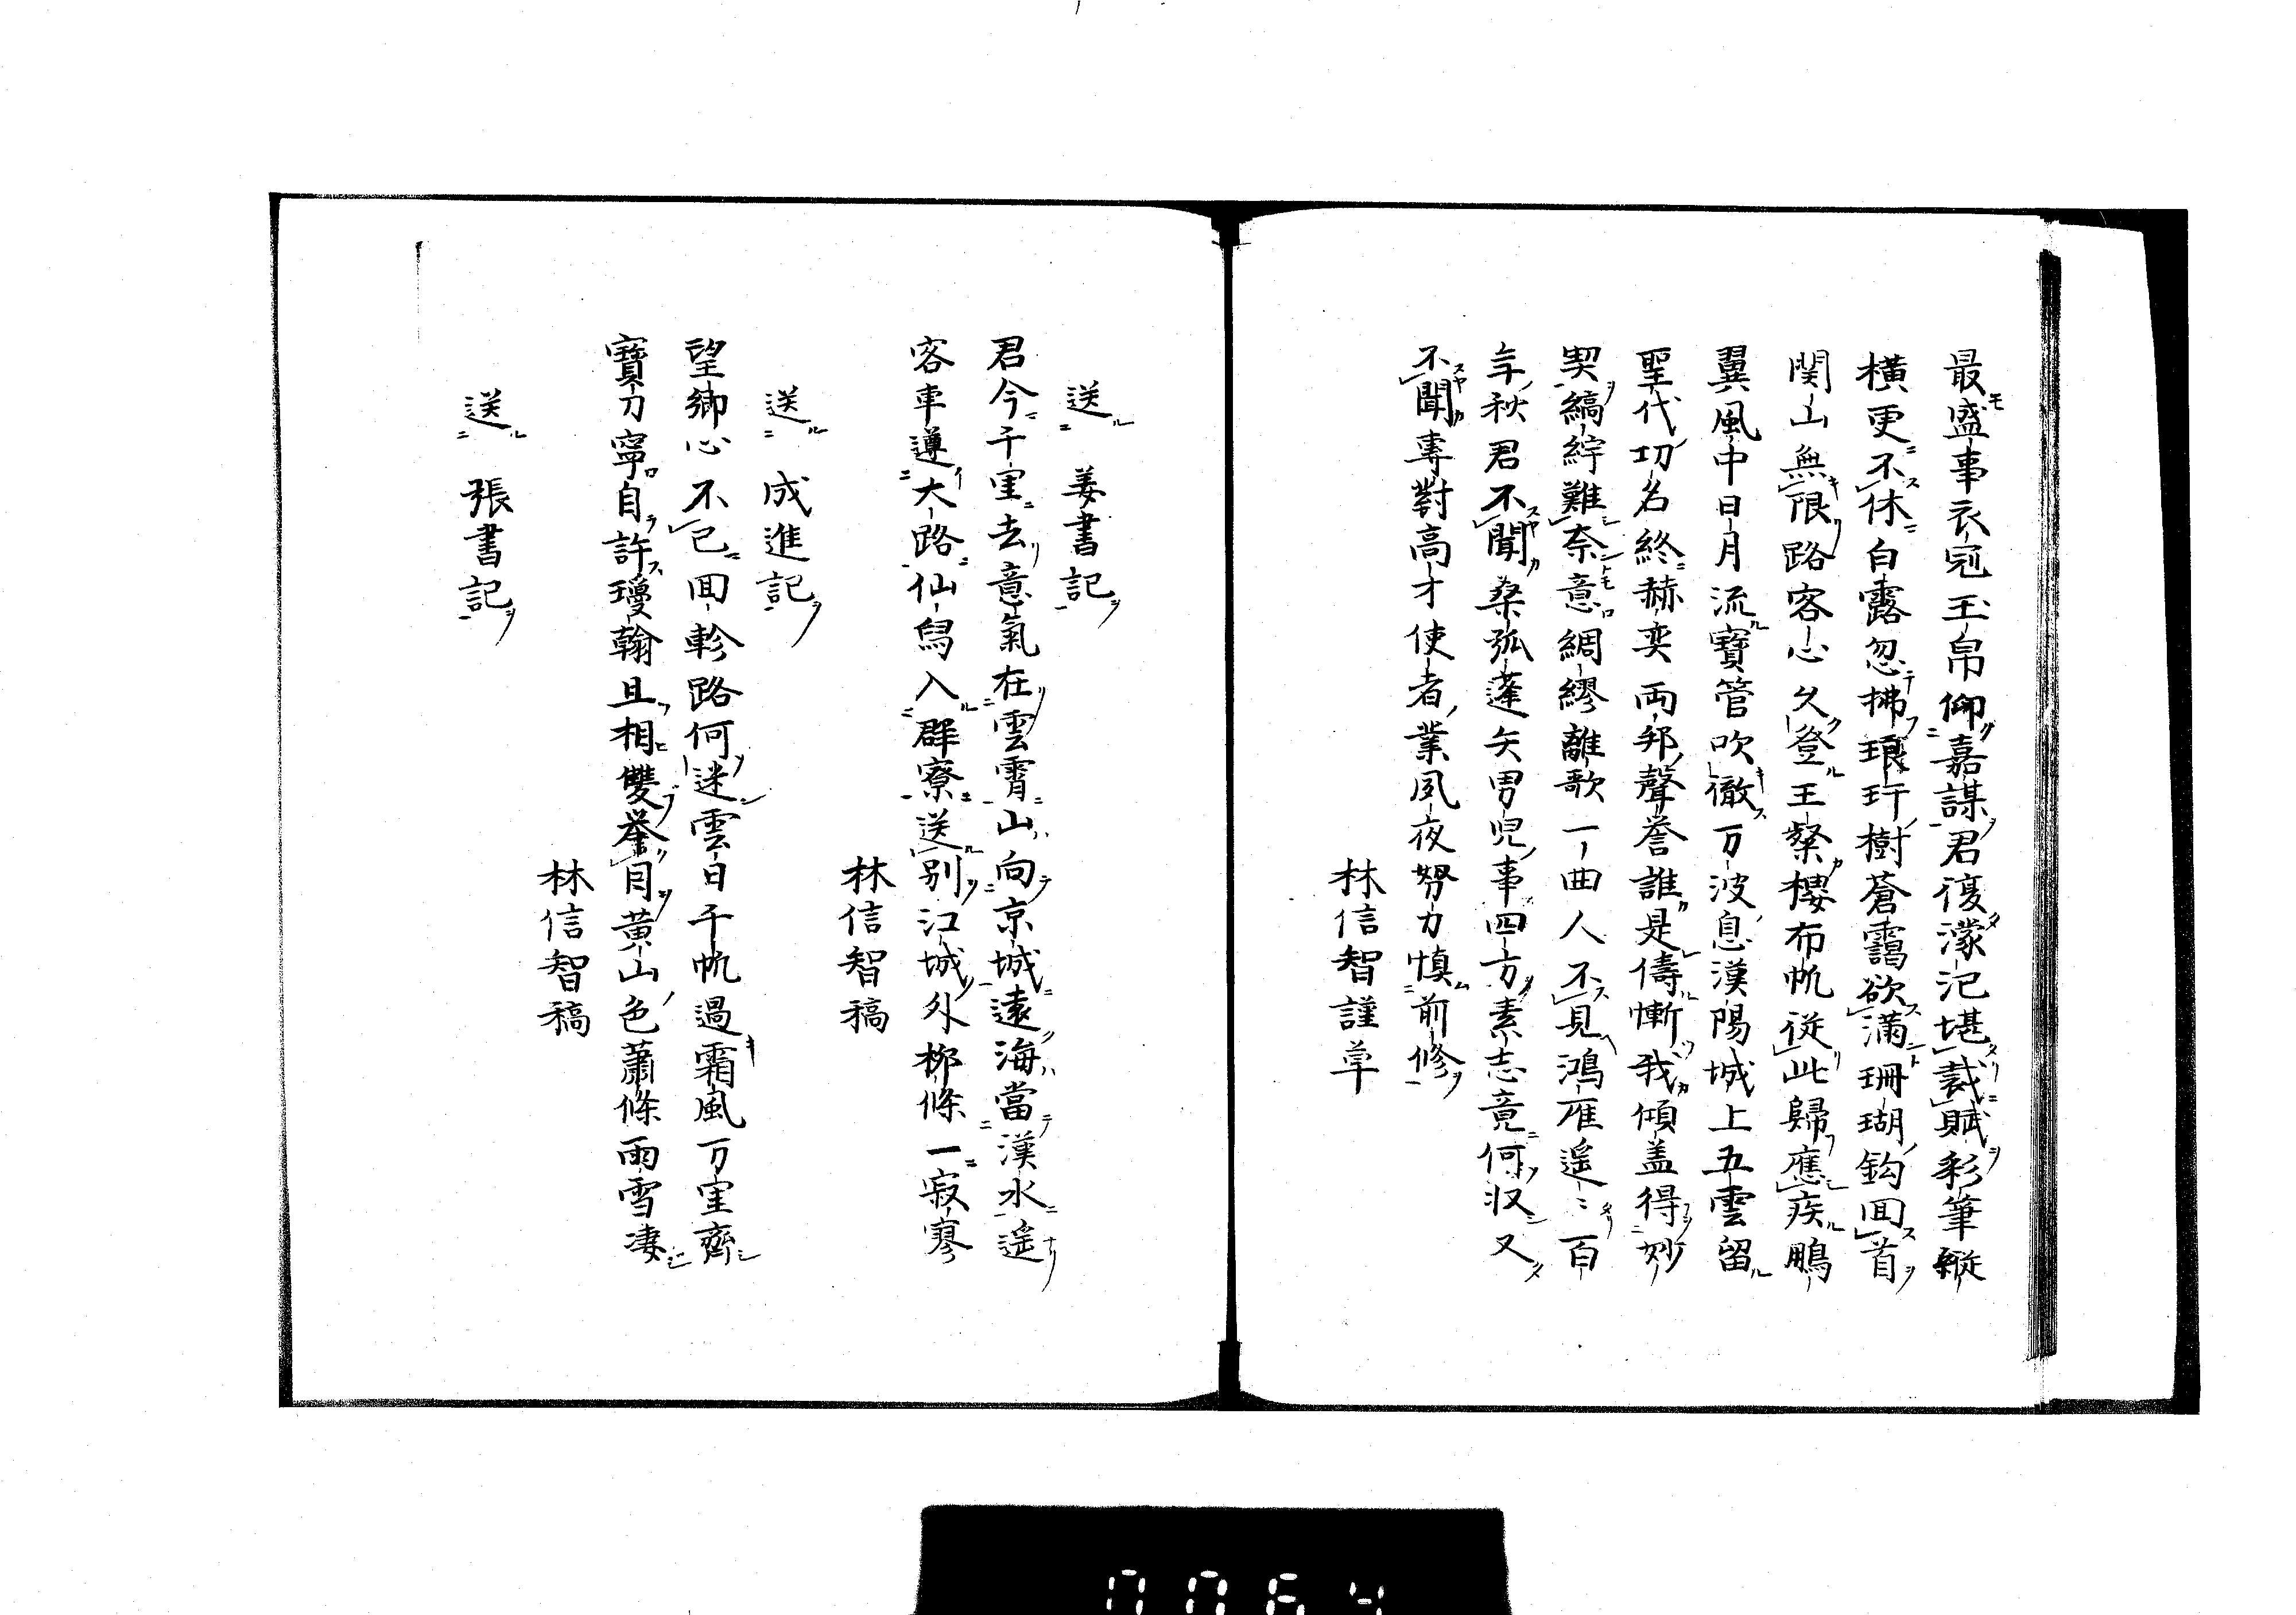 最盛事衣冠玉帛仰嘉謀君復濛汜堪裁賦彩筆縦
横更不休白露忽拂琅玕樹蒼靄欲滿珊瑚鈎回首
関山無限路客心久登王粲樓布帆従此歸應疾鵬
翼風中日月流寶管吹徹万波息漢陽城上五雲留
聖代功名終赫奕両邦聲誉誰是儔慚我傾盖得妙
契縞紵難奈意綢繆離歌一曲人不見鴻雁遥〻百
年秋君不聞桑弧蓬矢男児事四方素志竟何収又
不聞專對高才使者業夙夜努力慎前修
林信智謹草
送姜書記
君今千里去意氣在雲霄山向京城遠海當漢水遥
客車遵大路仙舄入群寮送別江城外柳條一寂寥
林信智稿
送成進記
望郷心不已回軫路何迷雲日千帆過霜風万里齊
寶刀寧自許瓊翰且相雙挙目黄山色蕭條雨雪凄
林信智稿
送張書記
0064